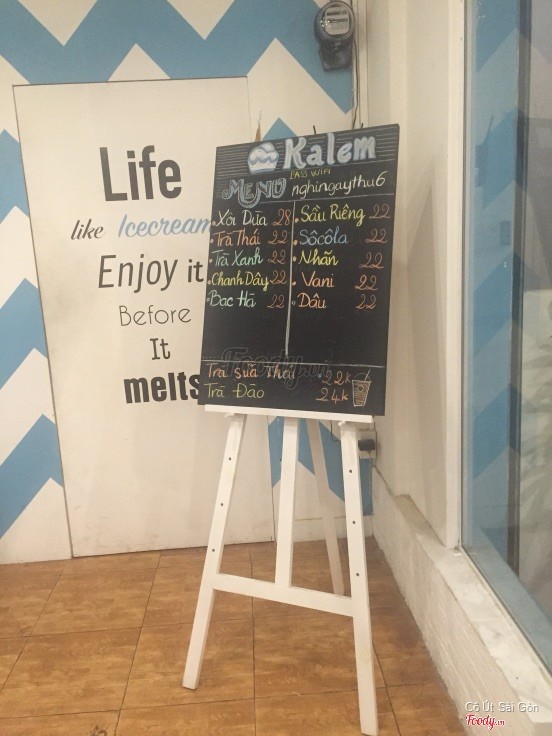 Life
like Icecream
Enjoy it
Before
It
melts
Kalem
PASS WIFI
MENU nghingaythu6
• Xôi Dừa 28
• Trà Thái 22
• Trà Xanh 22
• Chanh Dây 22
• Bạc Hà 22
• Sầu Riêng 22
• Sôcôla 22
• Nhãn 22
• Vani 22
• Dâu 22
Trà sữa Thái 22k
Trà Đào 24k
Foody.vn
Cô Út Sài Gòn
Foody.vn